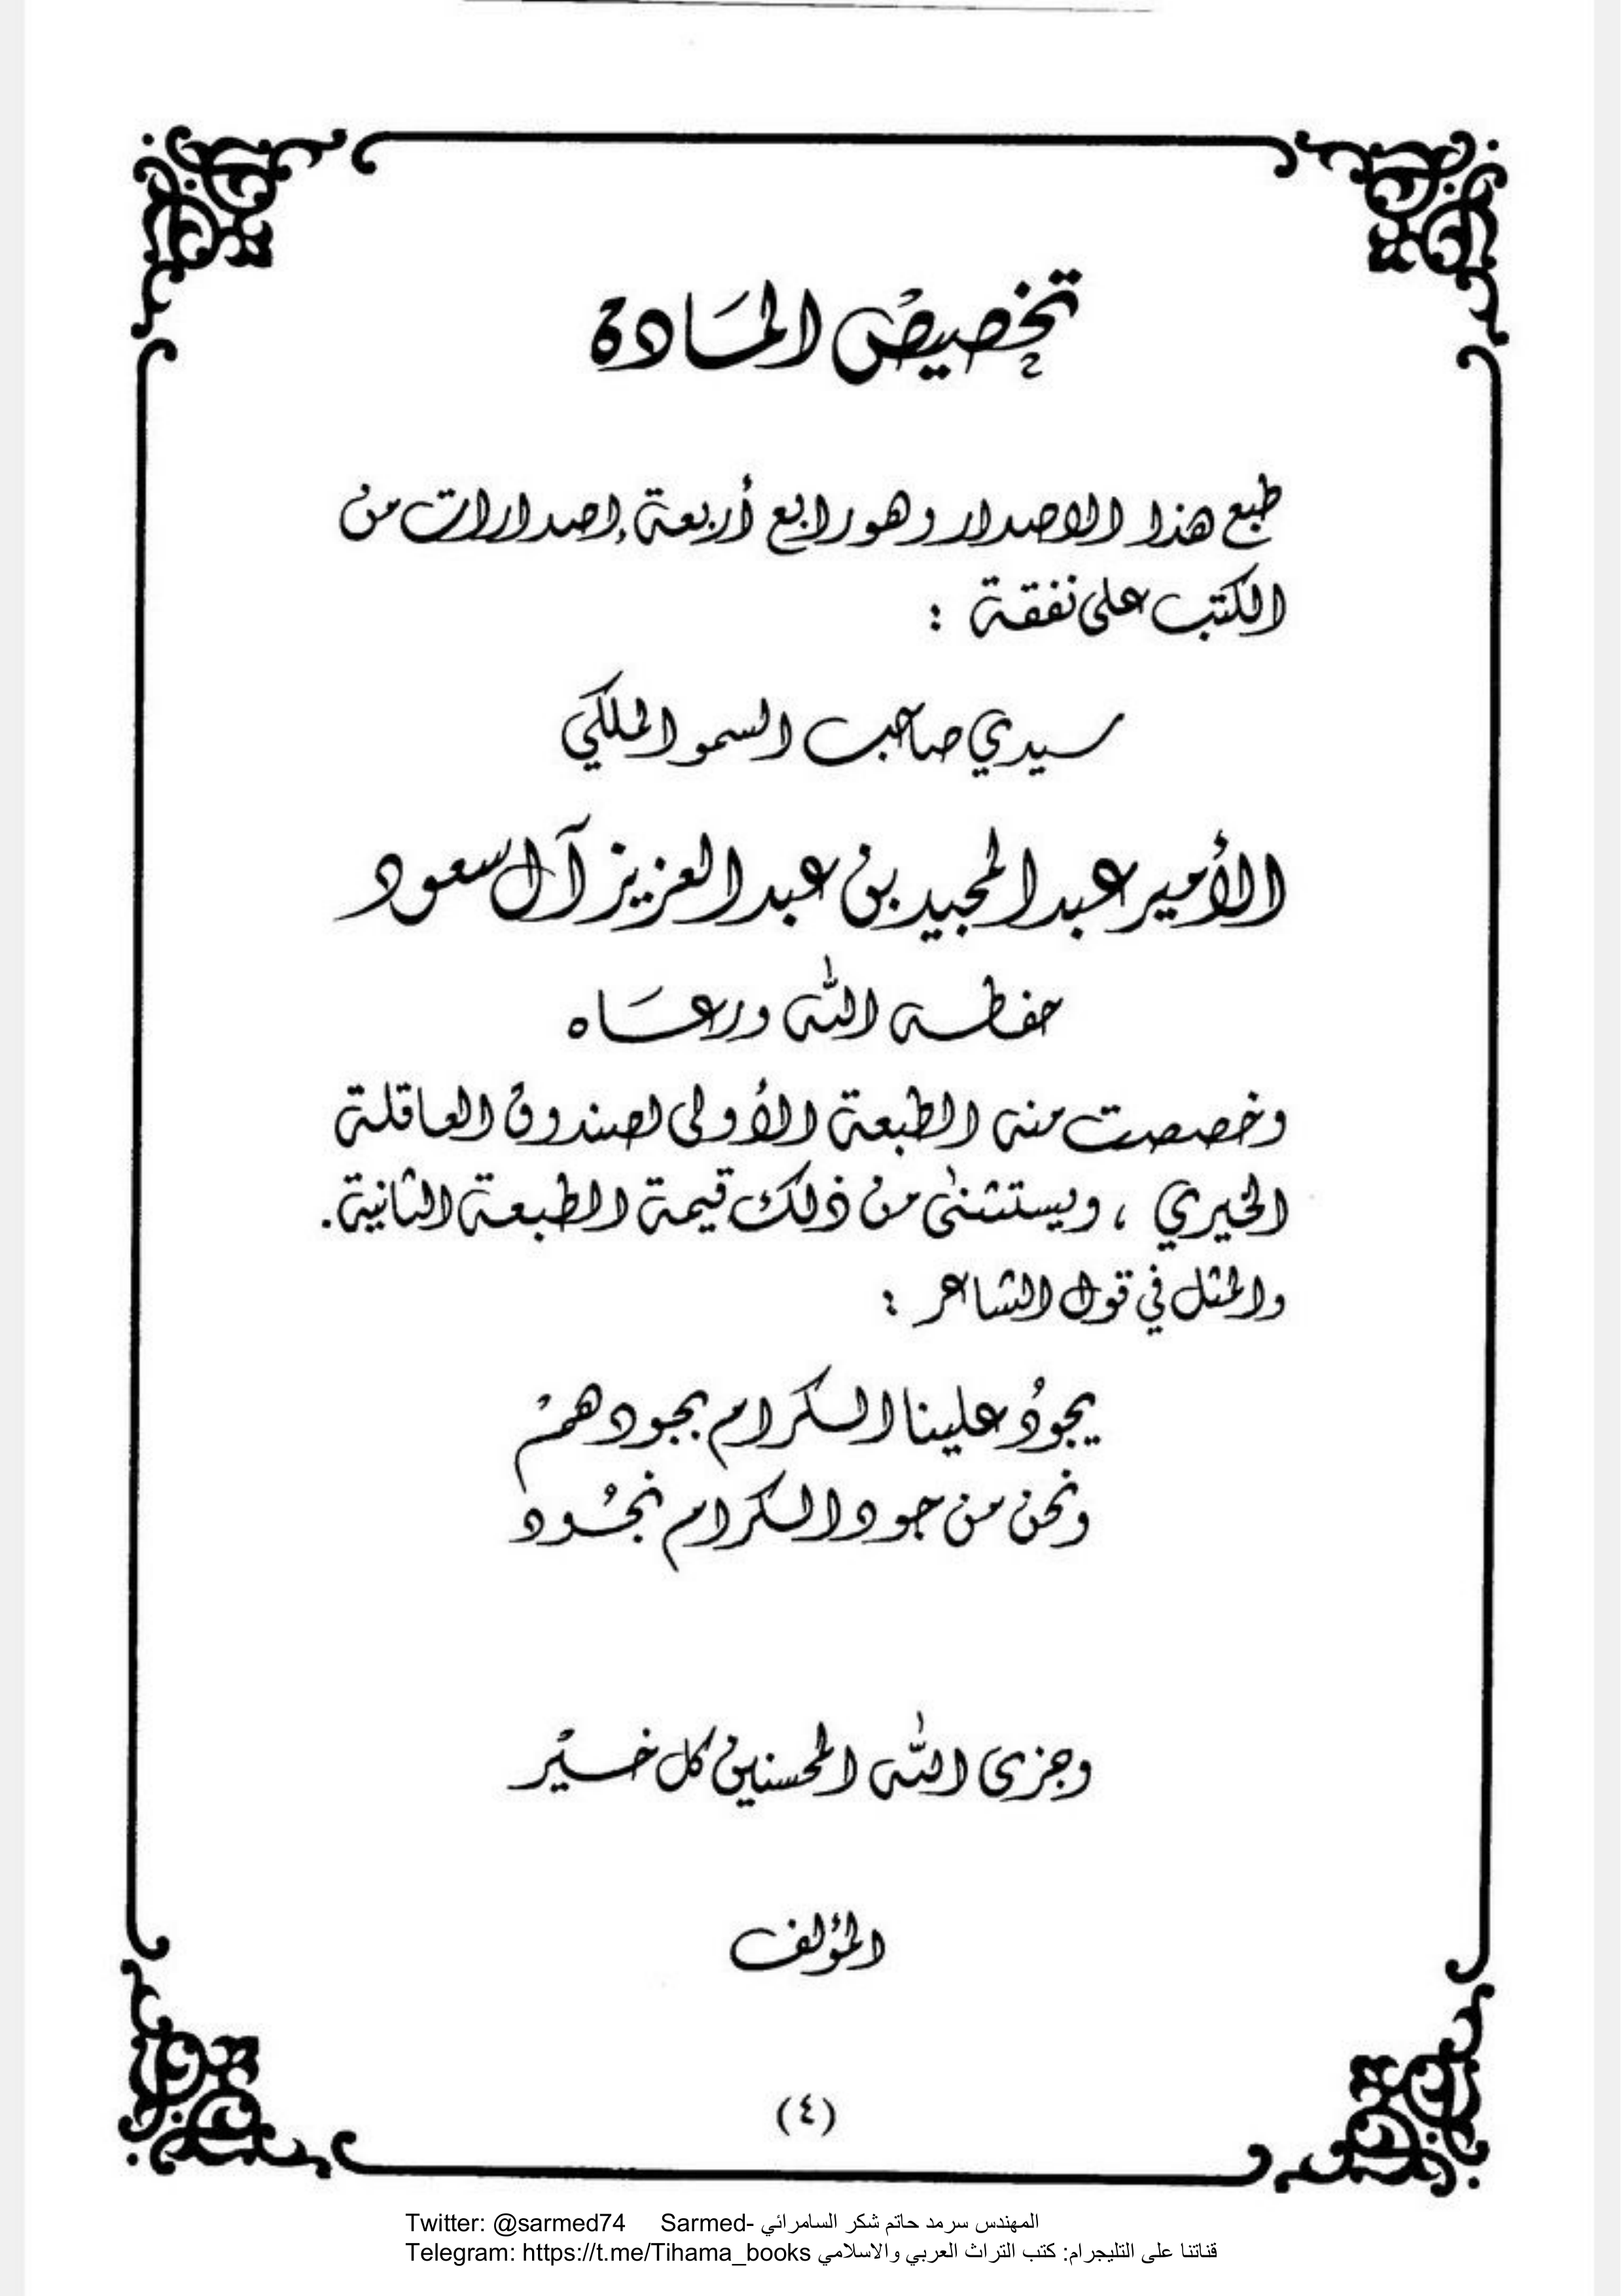 تخصيص المادة
طبع هذا الاصدار وهو رابع أربعة إصدارات من
الكتب على نفقة :
سيدي صاحب السمو الملكي
الأمير عبد المجيد بن عبد العزيز آل سعود
حفظه الله ورعاه
وخصصت منه الطبعة الأولى لصندوق العاقلة
الخيري ، ويستثنى من ذلك قيمة الطبعة الثانية.
والمثل في قول الشاعر :
يجودُ علينا الكرام بجودهمْ
ونحن من جود الكرام نجُود
وجزى الله المحسنين كل خيْر
المؤلف
(٤)
Twitter: @sarmed74 Sarmed- المهندس سرمد حاتم شكر السامرائي
Telegram: https://t.me/Tihama_books قناتنا على التليجرام: كتب التراث العربي والاسلامي